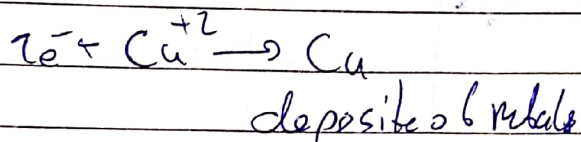 2e⁻ + Cu⁺² → Cu
deposite of metals